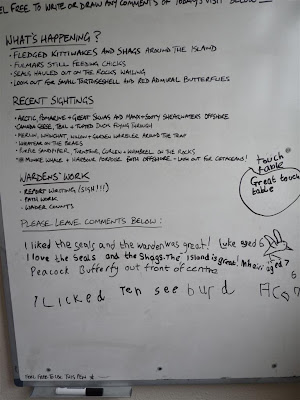 EEL FREE TO WRITE OR DRAW ANY COMMENTS OF TODAY'S VISIT BELOW
WHAT'S HAPPENING?
• FLEDGED KITTIWAKES AND SHAGS AROUND THE ISLAND
• FULMARS STILL FEEDING CHICKS
• SEALS HAULED OUT ON THE ROCKS WAILING
• LOOK OUT FOR SMALL TORTOISESHELL AND RED ADMIRAL BUTTERFLIES
RECENT SIGHTINGS
• ARCTIC, POMARINE + GREAT SKUAS AND MANX + SOOTY SHEARWATERS OFFSHORE
• CANADA GEESE, TEAL + TUFTED DUCK FLYING THROUGH
• MERLIN, WHINCHAT, WILLOW + GARDEN WARBLER AROUND THE TRAP
• WHEATEAR ON THE BRAES
• PURPLE SANDPIPER, TURNSTONE, CURLEW + WHIMBREL ON THE ROCKS
• MINKE WHALE + HARBOUR PORPOISE BOTH OFFSHORE - LOOK OUT FOR CETACEANS!
touch table
Great touch
table
WARDENS' WORK
• REPORT WRITING (SIGH!!!)
• PATH WORK
• WADER COUNTS
PLEASE LEAVE COMMENTS BELOW:
I liked the seals and the warden was great! Luke aged 6
I love the Seals and the Shags. The island is great! aged 7
Peacock Butterfly out front of centre
I Licked Ten see burd
FEEL FREE TO USE THIS PEN